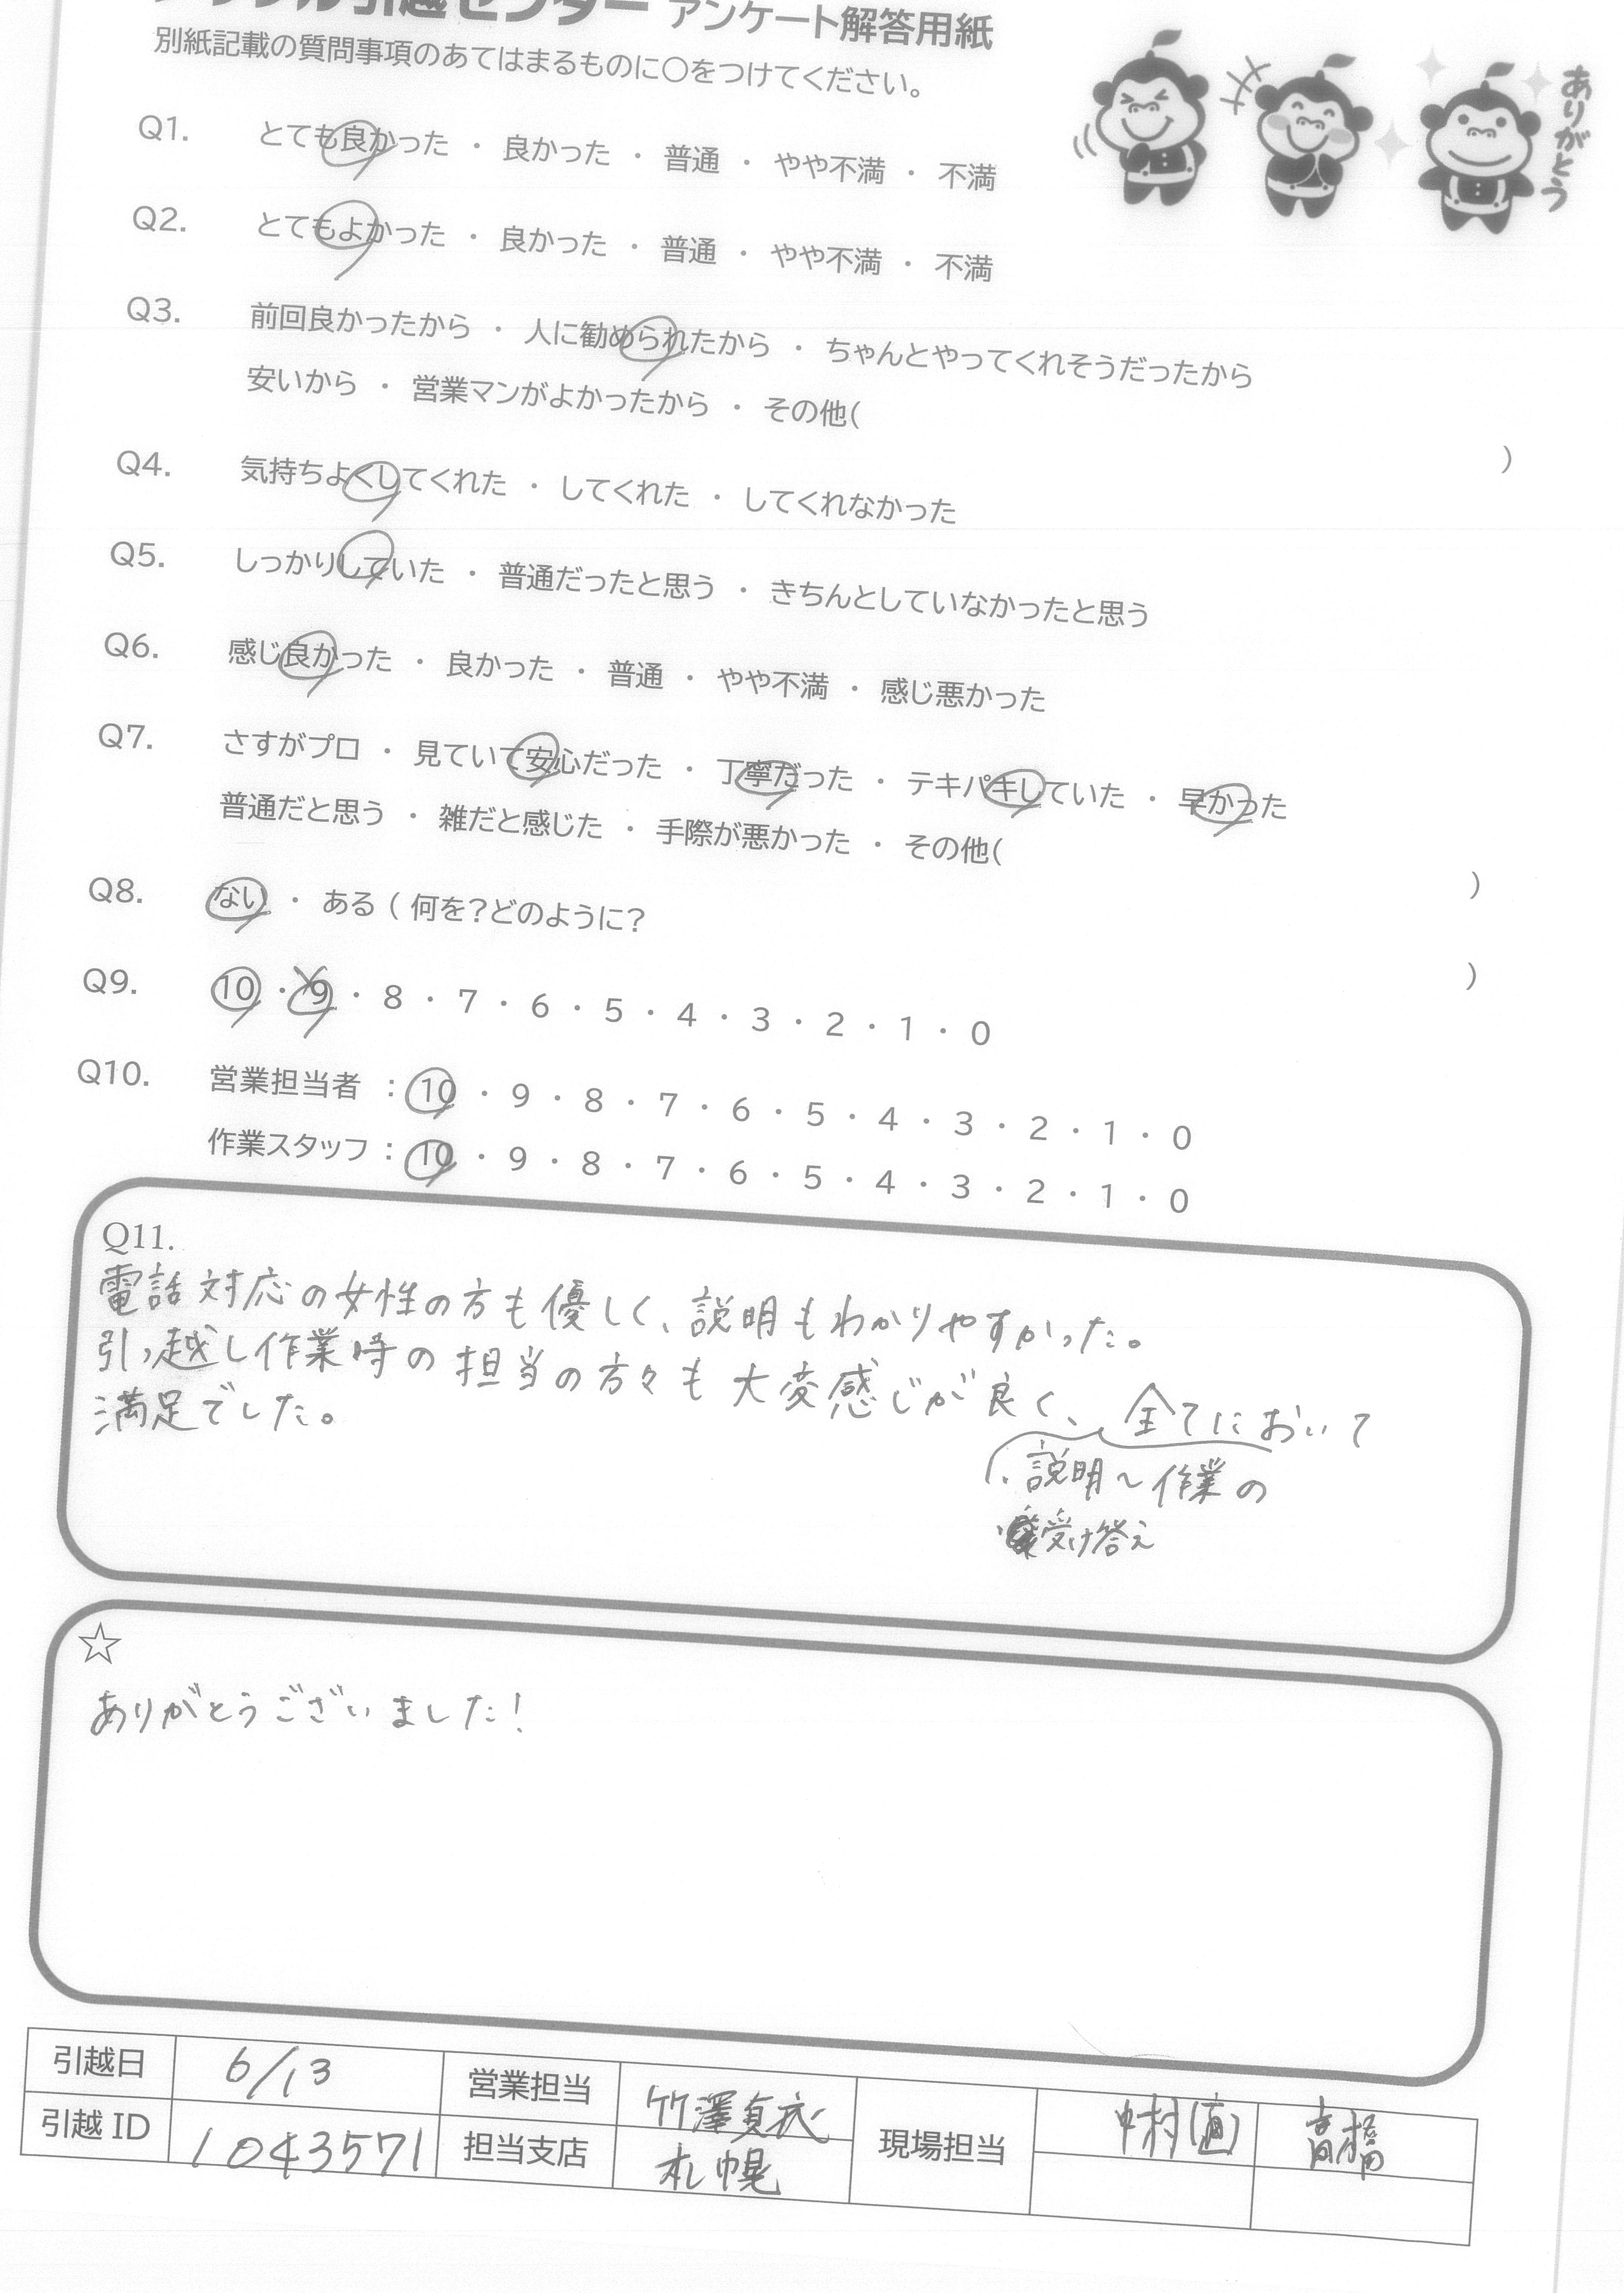 引越センター アンケート解答用紙
別紙記載の質問事項のあてはまるものに○をつけてください。
ありがとう
Q1. とても良かった ・ 良かった ・ 普通 ・ やや不満 ・ 不満
Q2. とてもよかった ・ 良かった ・ 普通 ・ やや不満 ・ 不満
Q3. 前回良かったから ・ 人に勧められたから ・ ちゃんとやってくれそうだったから
安いから ・ 営業マンがよかったから ・ その他( )
Q4. 気持ちよくしてくれた ・ してくれた ・ してくれなかった
Q5. しっかりしていた ・ 普通だったと思う ・ きちんとしていなかったと思う
Q6. 感じ良かった ・ 良かった ・ 普通 ・ やや不満 ・ 感じ悪かった
Q7. さすがプロ ・ 見ていて安心だった ・ 丁寧だった ・ テキパキしていた ・ 早かった
普通だと思う ・ 雑だと感じた ・ 手際が悪かった ・ その他( )
Q8. ない ・ ある ( 何を?どのように? )
Q9. 10 ・ 9 ・ 8 ・ 7 ・ 6 ・ 5 ・ 4 ・ 3 ・ 2 ・ 1 ・ 0
Q10. 営業担当者 : 10 ・ 9 ・ 8 ・ 7 ・ 6 ・ 5 ・ 4 ・ 3 ・ 2 ・ 1 ・ 0
作業スタッフ : 10 ・ 9 ・ 8 ・ 7 ・ 6 ・ 5 ・ 4 ・ 3 ・ 2 ・ 1 ・ 0
Q11.
電話対応の女性の方も優しく、説明もわかりやすかった。
引っ越し作業時の担当の方々も大変感じが良く、全てにおいて
満足でした。
・説明〜作業の
・受け答え
☆
ありがとうございました!
引越日 6/13 営業担当 竹澤貞衣 現場担当 中村(直) 高橋
引越ID 1043571 担当支店 札幌